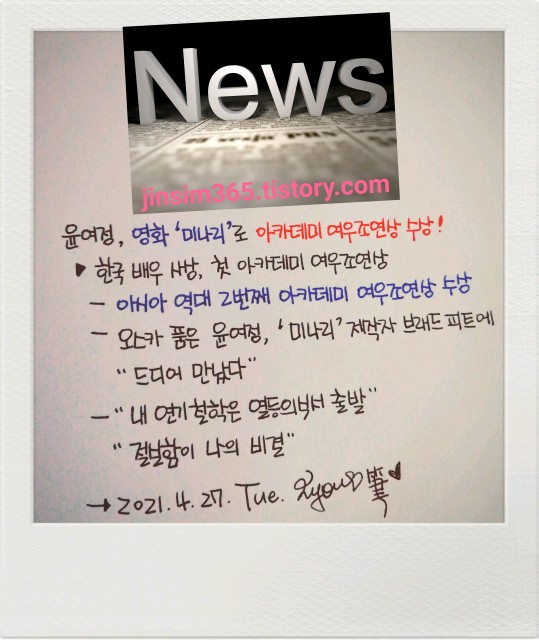 News
jinsim365.tistory.com
윤여정, 영화 '미나리'로 아카데미 여우조연상 수상!
▶ 한국 배우 사상, 첫 아카데미 여우조연상
- 아시아 역대 2번째 아카데미 여우조연상 수상
- 오스카 품은 윤여정, '미나리' 제작자 브래드 피트에
"드디어 만났다"
- "내 연기철학은 열등의식서 출발"
"절보함이 나의 비결"
→ 2021.4.27. Tue.